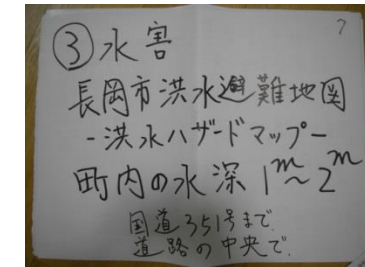 ③水害
長岡市洪水避難地図
-洪水ハザードマップ-
町内の水深 1m~2m
国道351号まで.
道路の中央で.